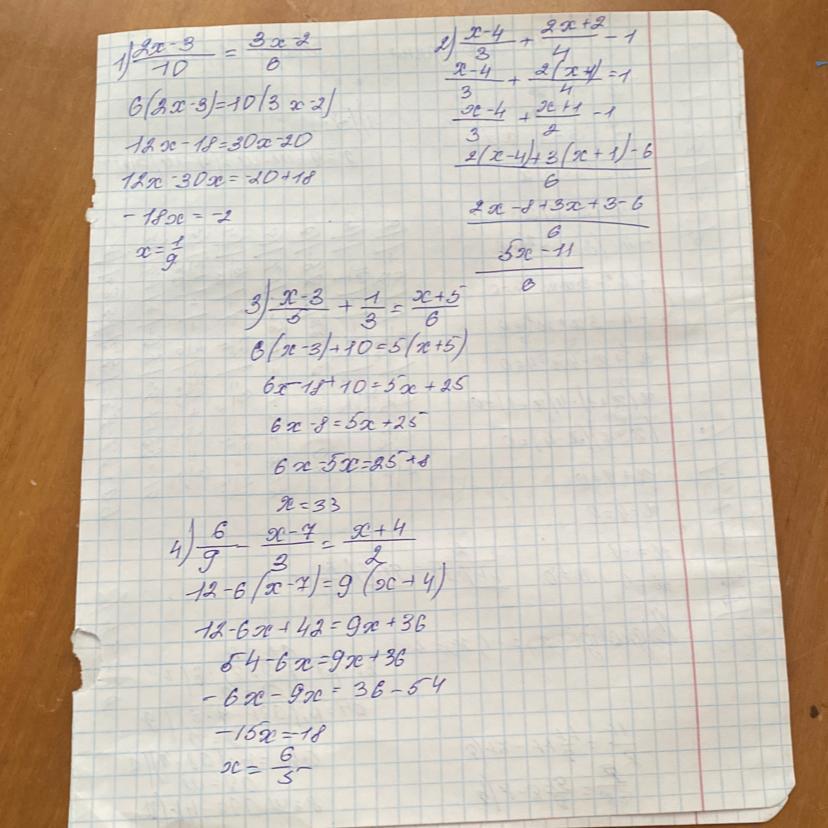 1) (2x-3)/10 = (3x-2)/6
6(2x-3)=10(3x-2)
12x-18=30x-20
12x-30x=-20+18
-18x=-2
x=1/9
2) (x-4)/3 + (2x+2)/4 - 1
(x-4)/3 + 2(x+1)/4 = 1
(x-4)/3 + (x+1)/2 - 1
(2(x-4)+3(x+1)-6)/6
(2x-8+3x+3-6)/6
(5x-11)/6
3) (x-3)/5 + 1/3 = (x+5)/6
6(x-3)+10=5(x+5)
6x-18+10=5x+25
6x-8=5x+25
6x-5x=25+8
x=33
4) 6/9 - (x-7)/3 = (x+4)/2
12-6(x-7)=9(x+4)
12-6x+42=9x+36
54-6x=9x+36
-6x-9x=36-54
-15x=-18
x=6/5